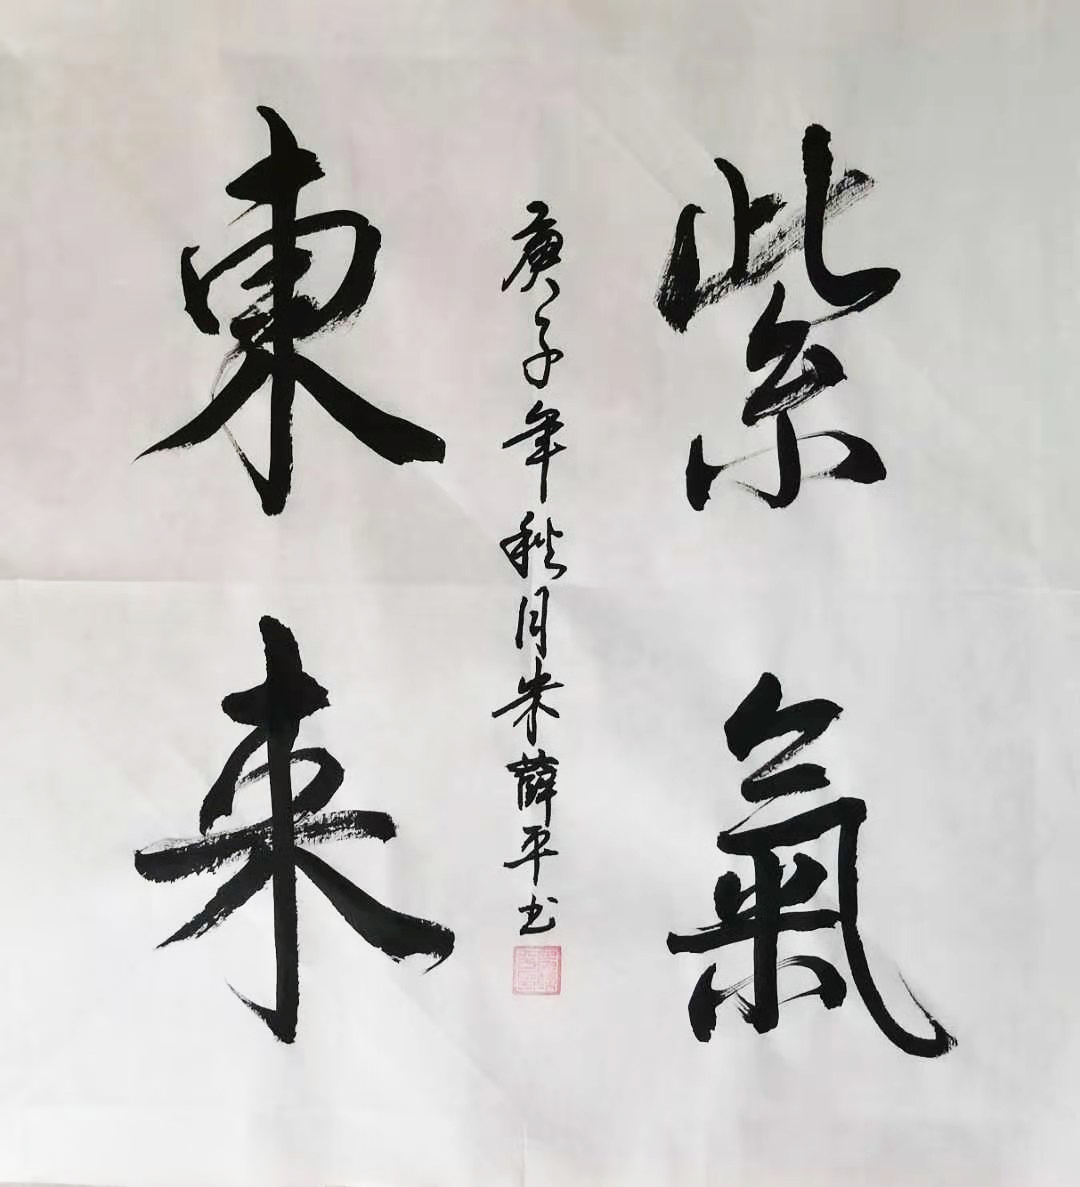 紫氣
東来
庚子年秋月朱薛平书